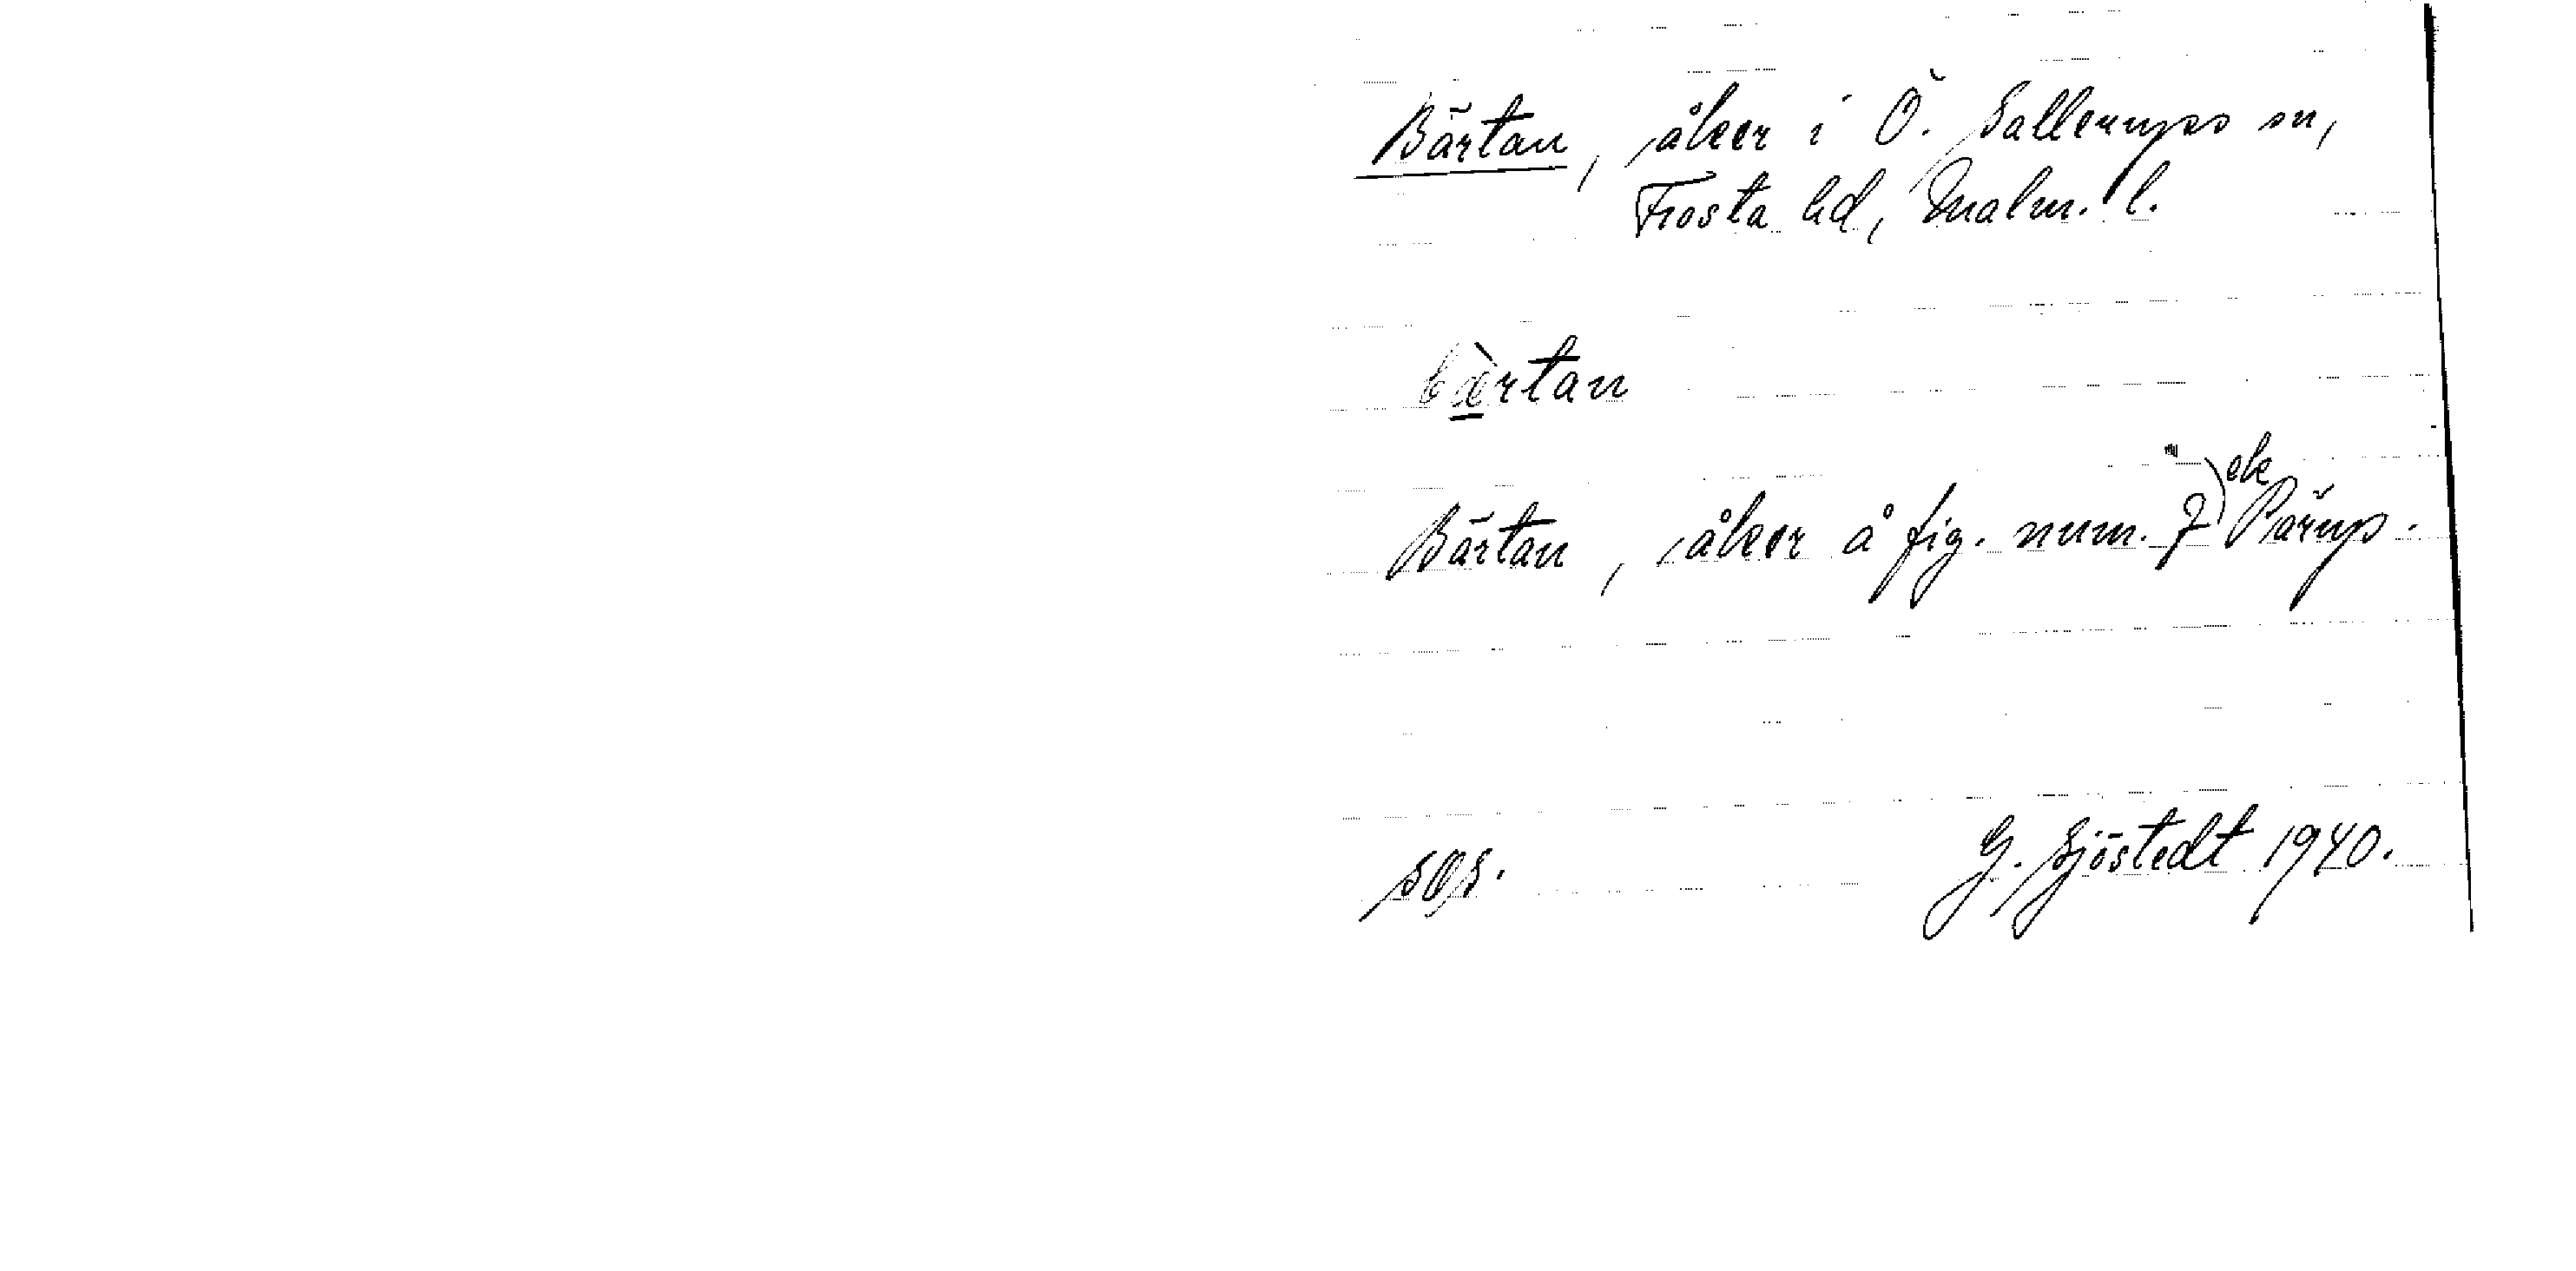 Bärtan, åker i Ö. Sallerups sn,
Frosta hd, Malm. l.
bæ̀rtan
Bärtan, åker å fig. num. 7) ek Pärup.
sɑs.
G. Sjöstedt 1940.